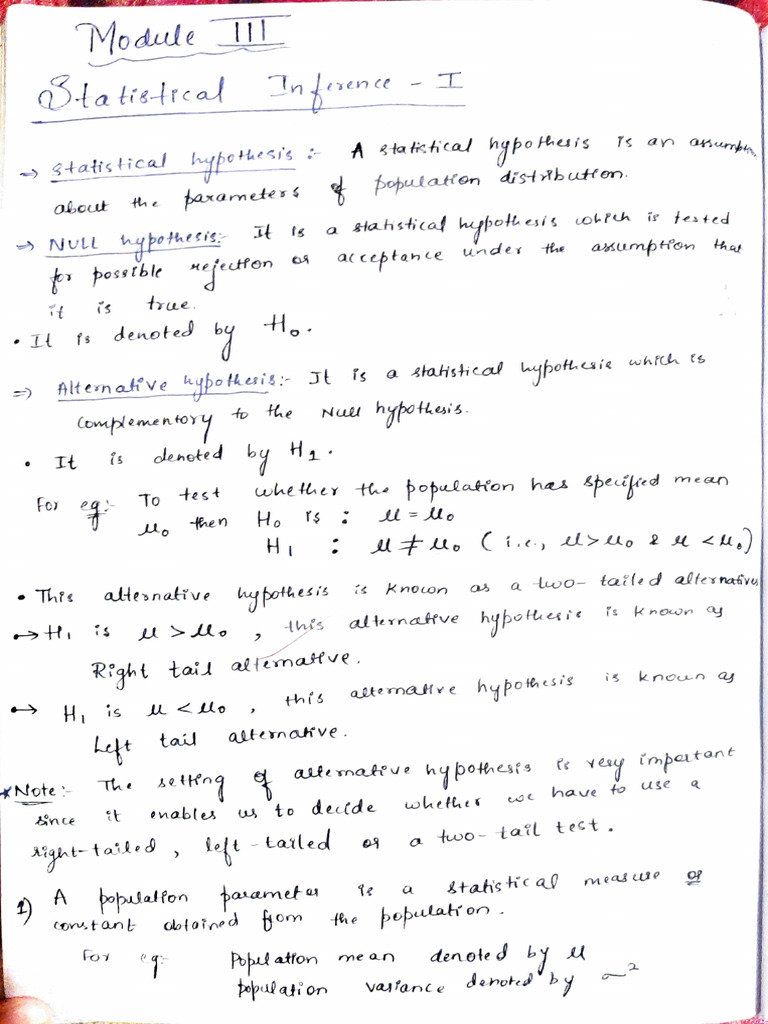 Module III
Statistical Inference - I
=> Statistical hypothesis :- A statistical hypothesis is an assumption
about the parameters of population distribution.
=> NULL hypothesis:- It is a statistical hypothesis which is tested
for possible rejection or acceptance under the assumption that
it is true.
• It is denoted by H₀.
=> Alternative hypothesis:- It is a statistical hypothesis which is
complementory to the Null hypothesis.
• It is denoted by H₁.
For eg:- To test whether the population has specified mean
μ₀ then H₀ is : μ = μ₀
H₁ : μ ≠ μ₀ (i.e., μ > μ₀ & μ < μ₀)
• This alternative hypothesis is known as a two-tailed alternative
→ H₁ is μ > μ₀, this alternative hypothesis is known as
Right tail alternative.
→ H₁ is μ < μ₀, this alternative hypothesis is known as
Left tail alternative.
* Note:- The setting of alternative hypothesis is very important
since it enables us to decide whether we have to use a
right-tailed, left-tailed or a two-tail test.
1) A population parameter is a statistical measure or
constant obtained from the population.
For eg:- Population mean denoted by μ
population variance denoted by σ²